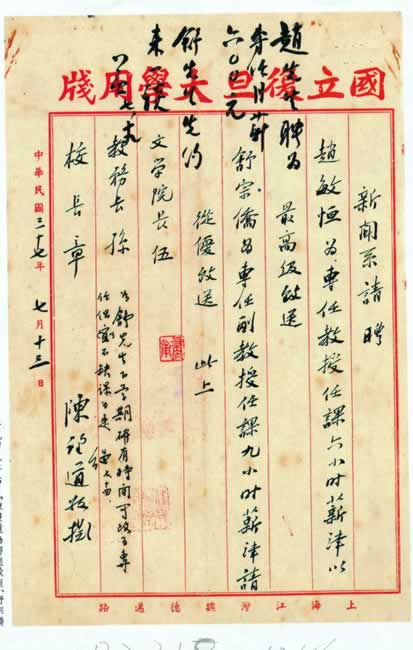 國立復旦大學用牋
新聞系請聘
趙敏恒為專任教授任課六小时薪津以
最高級致送
舒宗僑為專任副教授任課九小时薪津請
從優致送 此上
文学院長伍
教務長孫
校長章
陳望道敬擬
趙先生聘為
專任月薪
六〇〇元
舒先生先
舒先生下學期確有時間可改為專
任但宜不缺課
中華民國三十七年 七月十三日
上海江灣 路